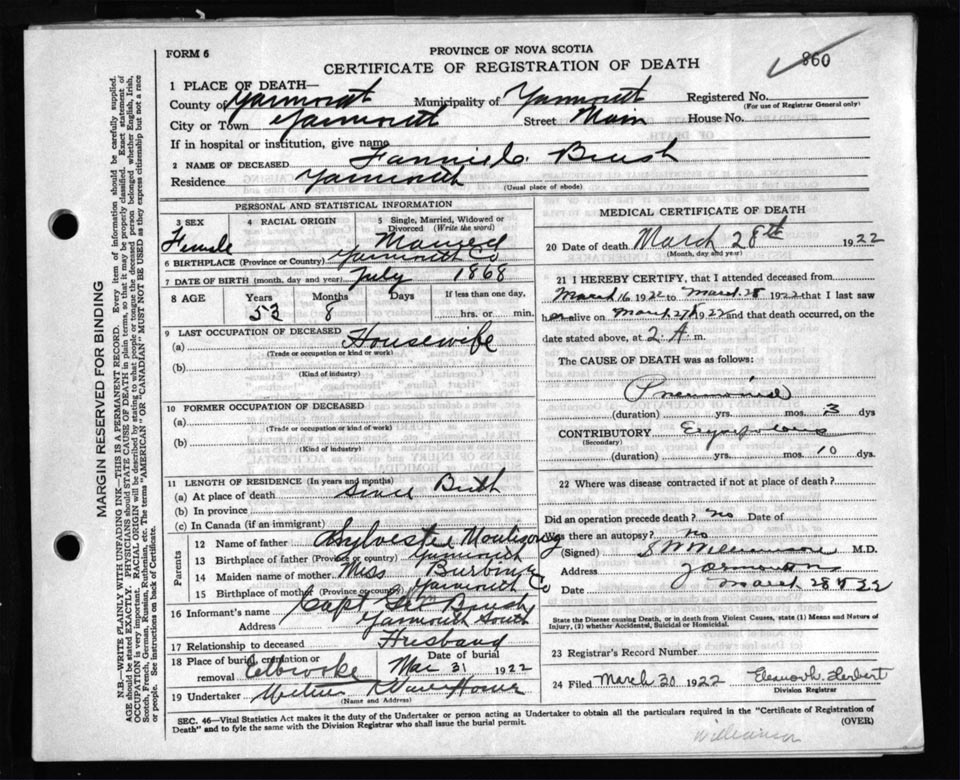 FORM 6
PROVINCE OF NOVA SCOTIA
CERTIFICATE OF REGISTRATION OF DEATH
860
1 PLACE OF DEATH—
County of Yarmouth Municipality of Yarmouth Registered No.
(For use of Registrar General only)
City or Town Yarmouth Street Main House No.
If in hospital or institution, give name
2 NAME OF DECEASED Fannie C. Brush
Residence Yarmouth
(Usual place of abode)
PERSONAL AND STATISTICAL INFORMATION
3 SEX
Female
4 RACIAL ORIGIN
5 Single, Married, Widowed or Divorced (Write the word)
Married
6 BIRTHPLACE (Province or Country) Yarmouth Co
7 DATE OF BIRTH (month, day and year) July 1868
8 AGE Years Months Days If less than one day,
53 8 hrs. or min.
9 LAST OCCUPATION OF DECEASED
(a) Housewife
(Trade or occupation or kind or work)
(b)
(Kind of industry)
10 FORMER OCCUPATION OF DECEASED
(a)
(Trade or occupation or kind of work)
(b)
(Kind of industry)
11 LENGTH OF RESIDENCE (In years and months)
(a) At place of death Since Birth
(b) In province
(c) In Canada (if an immigrant)
Parents
12 Name of father Sylvester
13 Birthplace of father (Province or country) Yarmouth
14 Maiden name of mother Miss
15 Birthplace of mother (Province or country) Yarmouth Co
16 Informant's name Capt Brush
Address Yarmouth South
17 Relationship to deceased Husband
18 Place of burial, cremation or removal Date of burial
Mar 31 1922
19 Undertaker
(Name and Address)
MEDICAL CERTIFICATE OF DEATH
20 Date of death March 28th 1922
(Month, day and year)
21 I HEREBY CERTIFY, that I attended deceased from
March 16 1922 to March 28 1922 that I last saw
her alive on March 27th 1922 and that death occurred, on the
date stated above, at 2. A. m.
The CAUSE OF DEATH was as follows:
Pneumonia
(duration) yrs. mos. 3 dys
CONTRIBUTORY
(Secondary)
(duration) yrs. mos. 10 dys.
22 Where was disease contracted if not at place of death?
Did an operation precede death? no Date of
Was there an autopsy? no
(Signed) S W Williamson M.D.
Address Yarmouth
Date March 28th 22
State the Disease causing Death, or in death from Violent Causes, state (1) Means and Nature of Injury, (2) whether Accidental, Suicidal or Homicidal.
23 Registrar's Record Number
24 Filed March 30 1922 Herbert
Division Registrar
SEC. 46—Vital Statistics Act makes it the duty of the Undertaker or person acting as Undertaker to obtain all the particulars required in the "Certificate of Registration of
Death" and to fyle the same with the Division Registrar who shall issue the burial permit.
(OVER)
Williamson
MARGIN RESERVED FOR BINDING
N.B.—WRITE PLAINLY WITH UNFADING INK—THIS IS A PERMANENT RECORD. Every item of information should be carefully supplied.
AGE should be stated EXACTLY. PHYSICIANS should STATE CAUSE OF DEATH in plain terms, so that it may be properly classified. Exact statement of
OCCUPATION is very important. RACIAL ORIGIN will be described by stating to what people or tongue the deceased person belonged whether English, Irish,
Scotch, French, German, Russian, Ruthenian, etc. The terms "AMERICAN" OR "CANADIAN" MUST NOT BE USED as they express citizenship but not a race
or people. See instructions on back of Certificate.